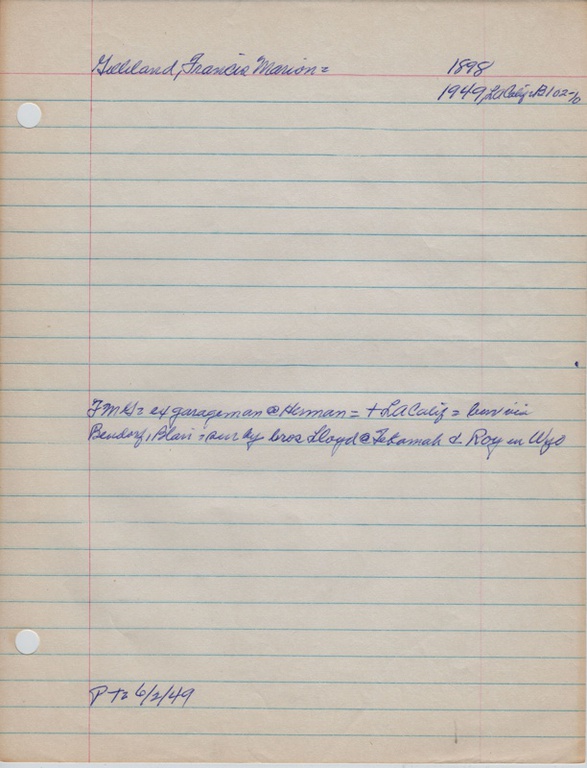 Gilliland, Francis Marion = 1898
1949, LA Calif = Bl 02-10
FMG = ex garageman @ Herman = + LA Calif = bur via
Bendorf, Blair = sur by bros Lloyd @ Tekamah & Roy in Wyo
PT = 6/2/49